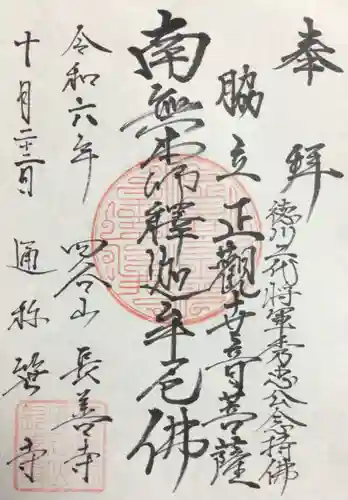 奉拝
徳川二代将軍秀忠公念持佛
脇立正觀世音菩薩
南無本師釋迦牟尼佛
令和六年 四谷山 長善寺
十月二十二日 通称 笹寺